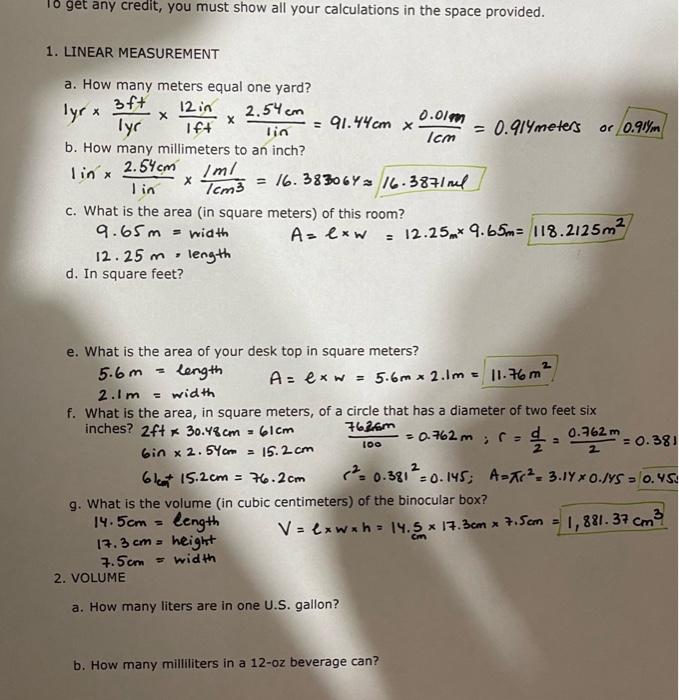 To get any credit, you must show all your calculations in the space provided.
1. LINEAR MEASUREMENT
a. How many meters equal one yard?
1yr x 3ft/1yr x 12in/1ft x 2.54cm/1in = 91.44cm x 0.01m/1cm = 0.914meters or 0.914m
b. How many millimeters to an inch?
1in x 2.54cm/1in x 1ml/1cm3 = 16.383064 ≈ 16.3871ml
c. What is the area (in square meters) of this room?
9.65m = width A= l×w = 12.25m× 9.65m= 118.2125m²
12.25 m = length
d. In square feet?
e. What is the area of your desk top in square meters?
5.6m = length A= l×w = 5.6m × 2.1m = 11.76m²
2.1m = width
f. What is the area, in square meters, of a circle that has a diameter of two feet six
inches? 2ft × 30.48cm = 61cm /100 = 0.762m ; r = d/2 = 0.762m/2 = 0.381
6in × 2.54cm = 15.2cm
15.2cm = 76.2cm r²= 0.381²=0.145; A=πr²= 3.14×0.145 = 0.455
g. What is the volume (in cubic centimeters) of the binocular box?
14.5cm = length V= l×w×h = 14.5cm × 17.3cm × 7.5cm = 1,881.37 cm³
17.3cm = height
7.5cm = width
2. VOLUME
a. How many liters are in one U.S. gallon?
b. How many milliliters in a 12-oz beverage can?